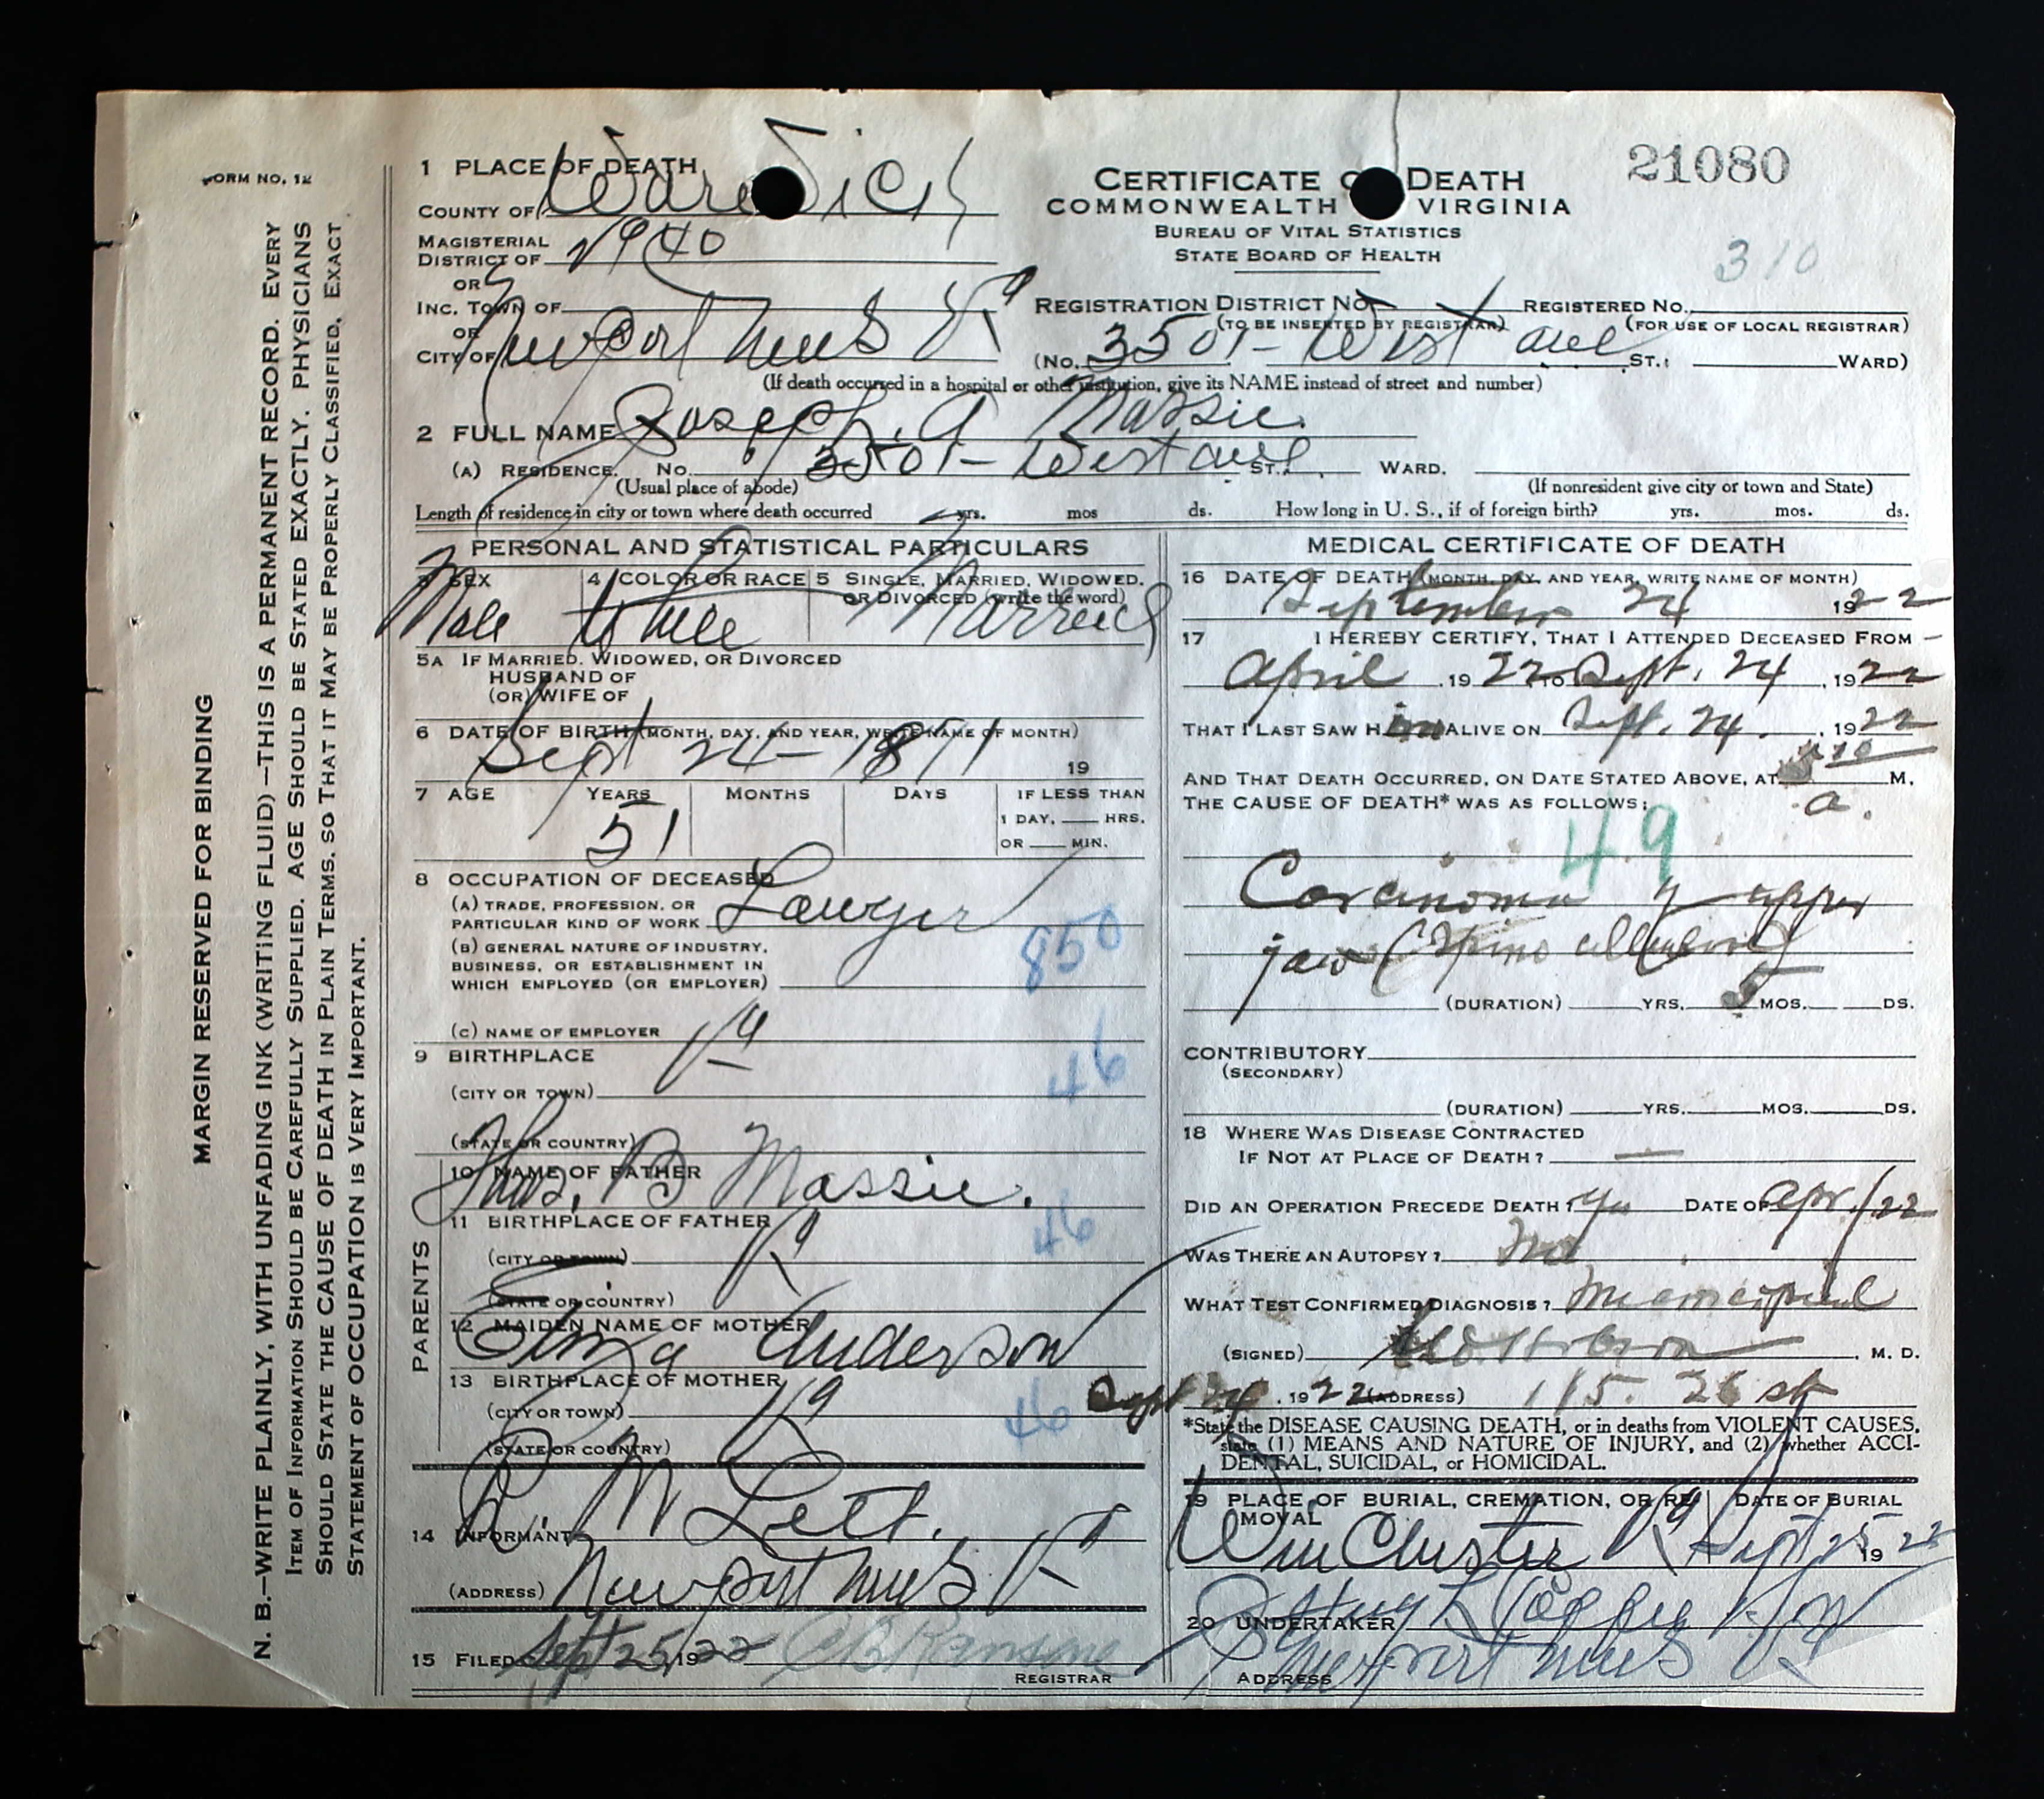 FORM NO. 12
MARGIN RESERVED FOR BINDING
N. B.—WRITE PLAINLY, WITH UNFADING INK (WRITING FLUID)—THIS IS A PERMANENT RECORD. EVERY
ITEM OF INFORMATION SHOULD BE CAREFULLY SUPPLIED. AGE SHOULD BE STATED EXACTLY. PHYSICIANS
SHOULD STATE THE CAUSE OF DEATH IN PLAIN TERMS, SO THAT IT MAY BE PROPERLY CLASSIFIED. EXACT
STATEMENT OF OCCUPATION IS VERY IMPORTANT.
1 PLACE OF DEATH
COUNTY OF Warwick
MAGISTERIAL
DISTRICT OF 1940
OR
INC. TOWN OF
OR
CITY OF Newport News Va
CERTIFICATE OF DEATH
COMMONWEALTH VIRGINIA
BUREAU OF VITAL STATISTICS
STATE BOARD OF HEALTH
21080
310
REGISTRATION DISTRICT NO. REGISTERED NO.
(TO BE INSERTED BY REGISTRAR) (FOR USE OF LOCAL REGISTRAR)
(No. 3501 - West ave ST.; WARD)
(If death occurred in a hospital or other institution, give its NAME instead of street and number)
2 FULL NAME Joseph. A Massie.
(A) RESIDENCE. No. 3501 - West ave ST., WARD.
(Usual place of abode) (If nonresident give city or town and State)
Length of residence in city or town where death occurred yrs. mos ds. How long in U. S., if of foreign birth? yrs. mos. ds.
PERSONAL AND STATISTICAL PARTICULARS
3 SEX 4 COLOR OR RACE 5 SINGLE, MARRIED, WIDOWED,
OR DIVORCED (write the word)
Male White Married
5A IF MARRIED, WIDOWED, OR DIVORCED
HUSBAND OF
(OR) WIFE OF
6 DATE OF BIRTH (MONTH, DAY, AND YEAR, WRITE NAME OF MONTH)
Sept 24 - 1871 19
7 AGE YEARS MONTHS DAYS IF LESS THAN
1 DAY, HRS.
OR MIN.
51
8 OCCUPATION OF DECEASED
(A) TRADE, PROFESSION, OR
PARTICULAR KIND OF WORK Lawyer
850
(B) GENERAL NATURE OF INDUSTRY,
BUSINESS, OR ESTABLISHMENT IN
WHICH EMPLOYED (OR EMPLOYER)
(C) NAME OF EMPLOYER
9 BIRTHPLACE Va
46
(CITY OR TOWN)
(STATE OR COUNTRY)
PARENTS
10 NAME OF FATHER
Thos. B Massie.
11 BIRTHPLACE OF FATHER
46
(CITY OR TOWN) Va
(STATE OR COUNTRY)
12 MAIDEN NAME OF MOTHER
Anderson
13 BIRTHPLACE OF MOTHER
(CITY OR TOWN) Va
46
(STATE OR COUNTRY)
14 INFORMANT M Lett.
(ADDRESS) Newport News Va
15 FILED Sept 25, 1922 C B Ransone
REGISTRAR
MEDICAL CERTIFICATE OF DEATH
16 DATE OF DEATH (MONTH, DAY, AND YEAR, WRITE NAME OF MONTH)
September 24 1922
17 I HEREBY CERTIFY, THAT I ATTENDED DECEASED FROM
April, 1922 TO Sept. 24, 1922
THAT I LAST SAW HIM ALIVE ON Sept. 24, 1922
AND THAT DEATH OCCURRED, ON DATE STATED ABOVE, AT M.
THE CAUSE OF DEATH* WAS AS FOLLOWS: a.
49
Carcinoma of upper
jaw
(DURATION) YRS. 5 MOS. DS.
CONTRIBUTORY
(SECONDARY)
(DURATION) YRS. MOS. DS.
18 WHERE WAS DISEASE CONTRACTED
IF NOT AT PLACE OF DEATH? —
DID AN OPERATION PRECEDE DEATH? Yes DATE OF Apr. /22
WAS THERE AN AUTOPSY? No
WHAT TEST CONFIRMED DIAGNOSIS?
(SIGNED) Hobson, M. D.
Sept 24, 1922 (ADDRESS) 115. 26 st
*State the DISEASE CAUSING DEATH, or in deaths from VIOLENT CAUSES,
state (1) MEANS AND NATURE OF INJURY, and (2) whether ACCI-
DENTAL, SUICIDAL, or HOMICIDAL.
19 PLACE OF BURIAL, CREMATION, OR RE- DATE OF BURIAL
MOVAL
Winchester Va Sept 25 1922
20 UNDERTAKER
ADDRESS Newport News Va